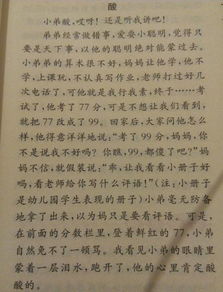 酸
小弟酸，哎呀！还是听我讲吧！
弟弟经常做错事，爱耍小聪明，觉得只
要是天下事，以他的聪明绝对能蒙过去。
小弟弟的算术很不好，妈妈让他学，他不
学，上课玩，不认真写作业，老师打过好几
次电话了，可他就是我行我素，终于……考
试了，他考了77分，可是不想让我们看到，
就把77改成了99。回家后，大家问他怎么
样，他得意洋洋地说：“考了99分，妈妈，你
不是说我不好吗？你瞧，99，都傻了吧？”妈
妈不信，就假装说：“幸，让我看看小册子好
吗，看老师给你写什么评语！”（注：小册子
是幼儿园学生表现的册子）小弟毫无防备
地拿了出来，以为妈只是要看评语。可是，
在前面的分数栏里，登着鲜红的77，小弟
自然免不了一顿骂。我看见小弟的眼睛里
蒙着一层泪水，跑开了，他的心里肯定酸
酸的。